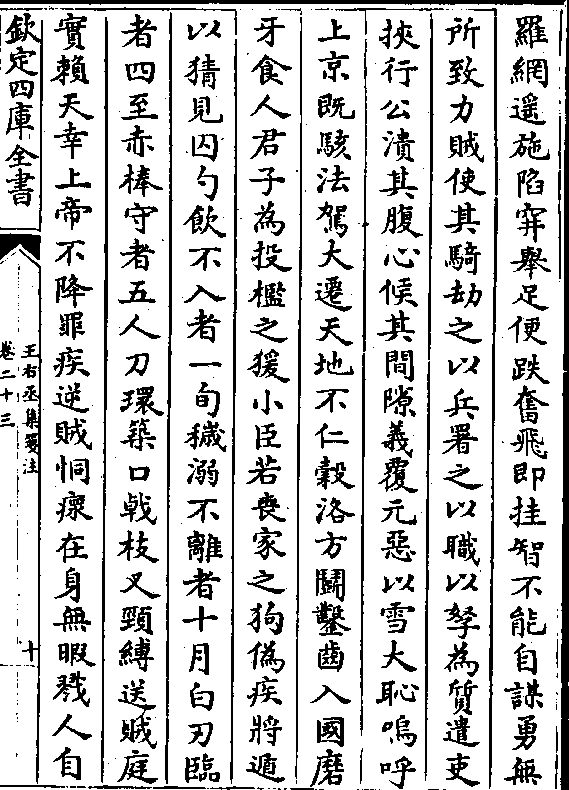 羅網遥施陷穽舉足便跌奮飛即挂智不能自謀勇無
所致力賊使其騎劫之以兵署之以職以孥為質遣吏
挾行公潰其腹心候其間隙義覆元惡以雪大恥嗚呼
上京既駭法駕大遷天地不仁榖洛方鬭鑿齒入國磨
牙食人君子為投檻之猨小臣若喪家之狗偽疾將遁
以猜見囚勺飲不入者一旬穢溺不離者十月白刃臨
者四至赤棒守者五人刀環築口戟枝叉頸縛送賊庭
實賴天幸上帝不降罪疾逆賊恫瘝在身無暇戮人自
欽定四庫全書
王右丞集箋注
卷二十三
十